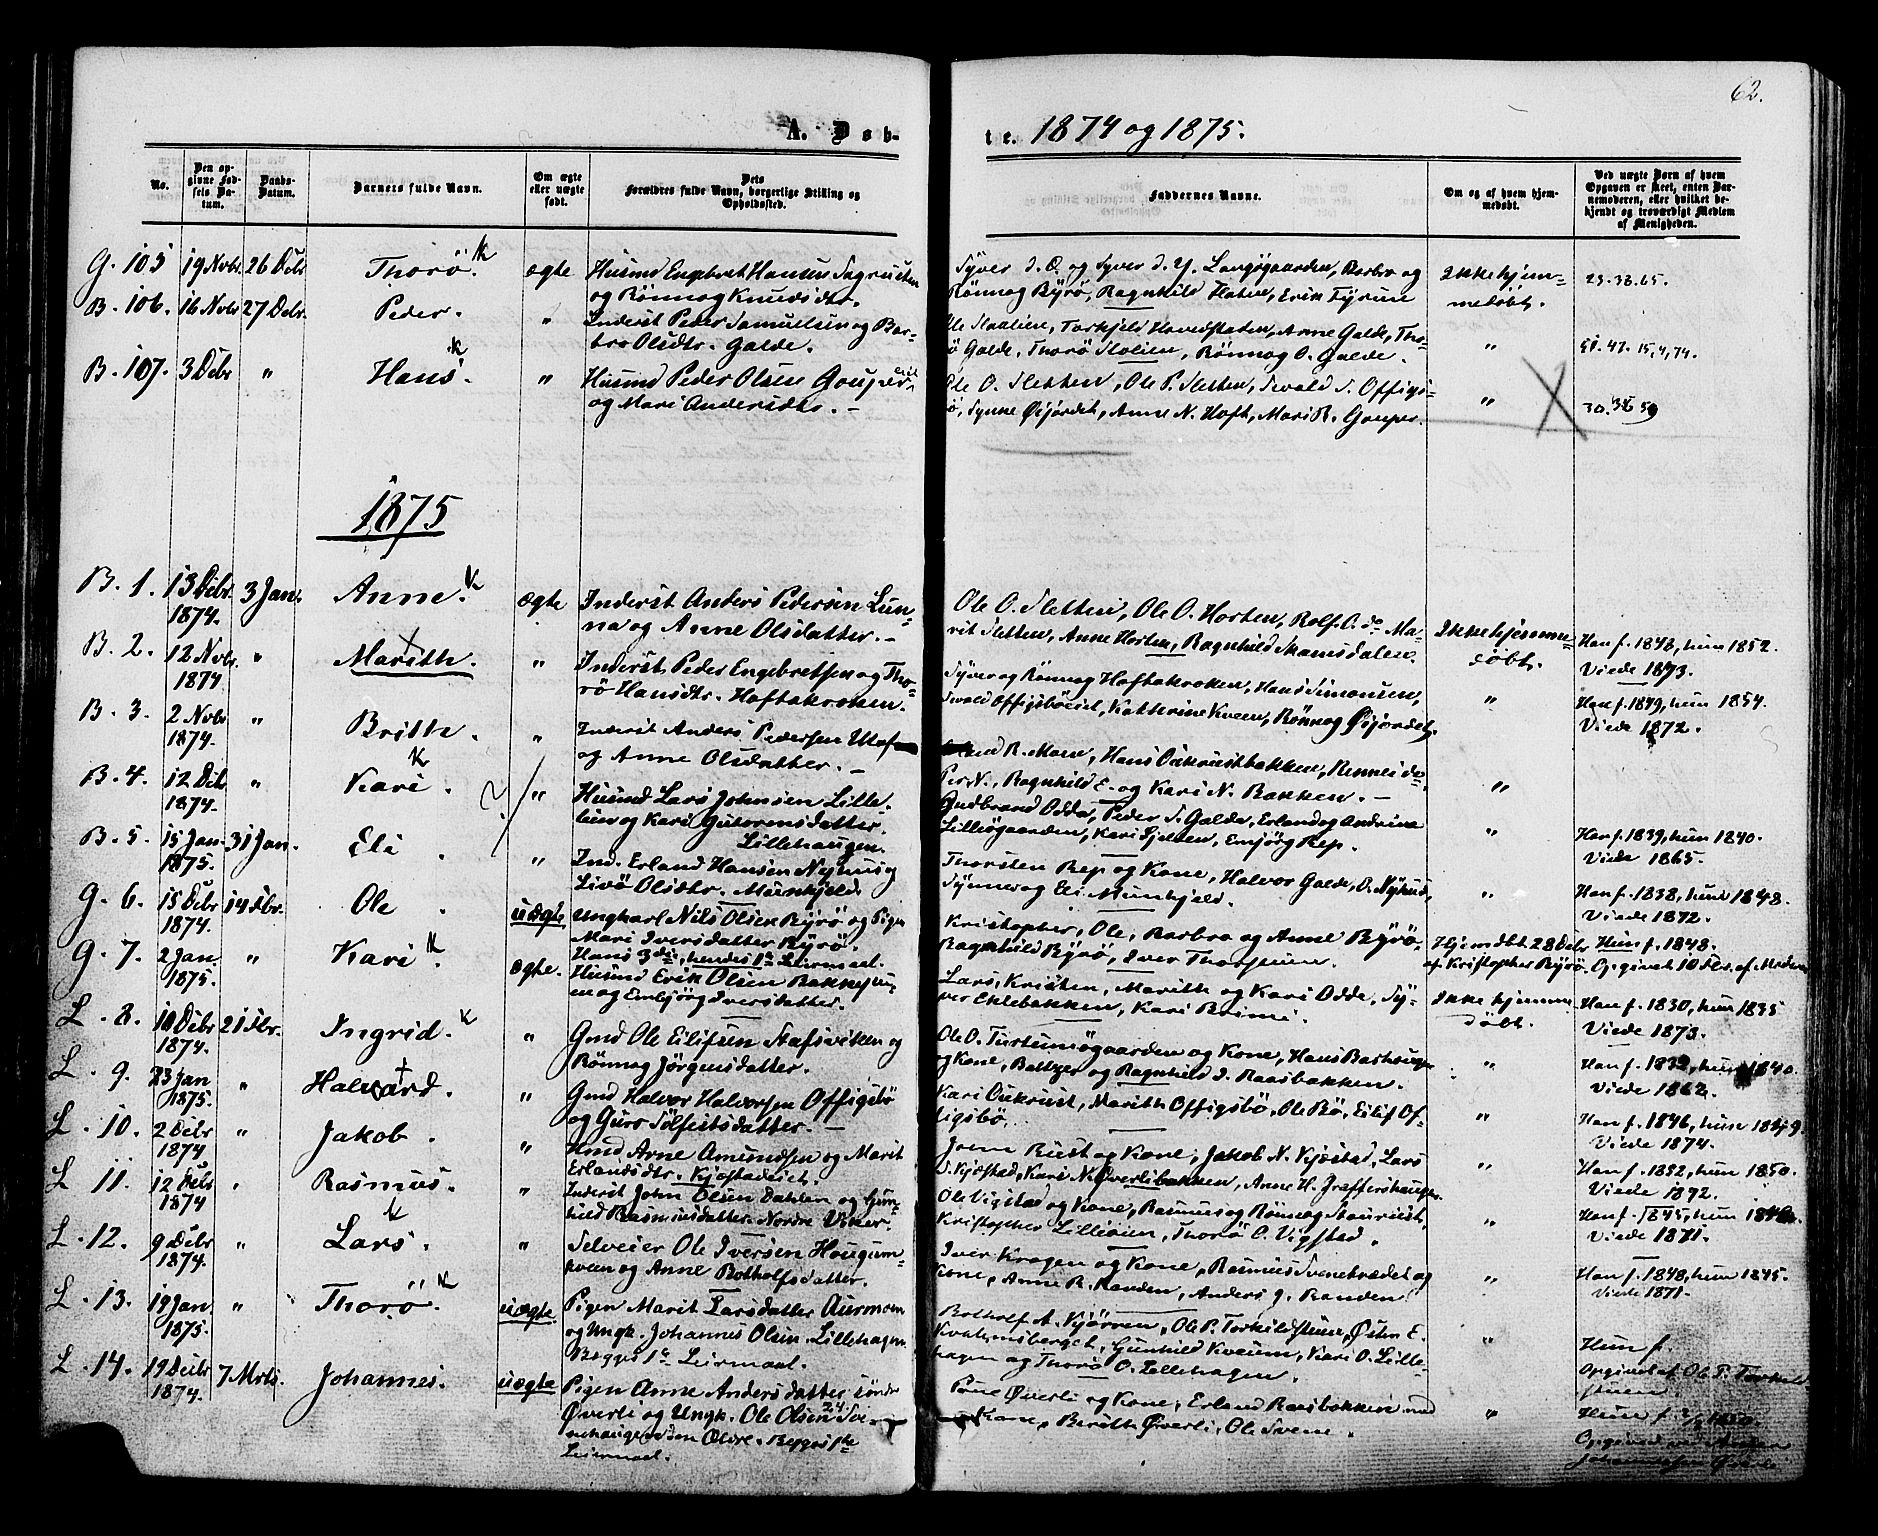 62.
A. Døb-
te. 1874 og 1875.
No.
Den op-
givne Fød-
sels Da-
tum.
Daabs-
Datum.
Barnets fulde Navn.
Om ægte
eller uægte
født.
Dets
Forældres fulde Navn, borgerlige Stilling og
Opholdssted.
Faddernes Navne.
Om og af hvem hjem-
medøbt.
Ved uægte Børn af hvem
Opgaven er skeet, enten Bar-
nemoderen, eller hvilket be-
kjendt og troværdigt Medlem
af Menigheden.
G. 105 19 Novbr. 26 Debr Thorø. k ægte Husmd Engebret Hansen
og Rønnog Knudsdtr.
Syver S. O. og Syver S. Y. Langøgaarden, Barbro og
Rønnog Byrø, Ragnhild Flaten, Erik
Ikke hjem-
medøbt. 23.38.65.
B. 106. 16 Novbr 27 Debr. Peder. " Inderst Peder Samuelsen og Bar-
bro Olsdtr. Galde.
Ole Staalien, Torkjeld Hovedstaden, Anne Galde, Tho-
rø Galde, Thorø Stolien, Rønnog O. Galde. " 51.47. 15,4,74.
B. 107. 3 Debr " Hans k " Husmd Peder Olsen Gouper
og Mari Andersdtr. —
Ole O. Sletten, Ole P. Sletten, Sevald S. Offigs-
bø, Synne Øijordet, Anne N. Hoft, Mari R. Gouper. " 30.38 59
1875
B. 1. 13 Debr.
1874. 3 Jan. Anne. k ægte Inderst Anders Pedersen Lun-
na og Anne Olsdatter. —
Ole O. Sletten, Ole O. Horten, Rolf O. do Ma-
rit Sletten, Anne Horten, Ragnhild Skamsdalen.
Ikke hjemme-
døbt. Han f. 1848, hun 1852.
Viede 1873.
B. 2. 12 Novbr.
1874. " Marith. " Inderst Peder Engebretsen og Tho-
rø Hansdtr. Hoftakroken.
Syver og Rønnog Hoftakroken, Hans Simonsen,
Sevald Offigsbøeiet, Katherine Kveen, Rønnog Øijordet. " Han f. 1849, hun 1854.
Viede 1872.
B. 3. 2 Novbr
1874. " Brith. " Inderst Anders Pedersen
og Anne Olsdatter. —
R. Moen, Hans Oukrustbakken,
Per N., Ragnhild E. og Kari N. Bakken. — "
B. 4. 12 Debr
1874. " Kari. k " Husmd Lars Johnsen Lille-
lien og Kari Gutormsdatter.
Lillehaugen.
Gudbrand Odda, Peder S. Galde, Erland og Andrine
Lilløgaarden, Kari Fjelden, Embjørg Rep. " Han f. 1839, hun 1840.
Viede 1865.
B. 5. 15 Jan.
1875. 31 Jan. Eli. " Ind. Erland Hansen Nyhus og
Livø Olsdtr. Munkjeld.
Thorsten Rep og Kone, Halvor Galde, O. Nyhus,
Synnev og Eli Munkjeld. " Han f. 1838, hun 1848.
Viede 1872.
G. 6. 15 Debr
1874. 14 Fbr. Ole. uægte Ungkarl Nils Olsen Byrø og Pigen
Mari Iversdatter Byrø.
Hans 3die, hendes 1ste Leiermaal.
Kristopher, Ole, Barbro og Anne Byrø,
Ragnhild Byrø, Iver Thorsteen.
Hjemdbt. 28 Debr
af Kristopher Byrø. Hun f. 1848.
Opgivet 10 Fbr. af Moderen
G. 7. 2 Jan.
1875. " Kari. k ægte. Husmd Erik Olsen Bakkejor-
en og Embjørg Iversdatter.
Lars, Kristen, Marith og Kari Odde, Sy-
ver Eklebakken, Kari Brimi.
Ikke hjemme-
døbt. Han f. 1830, hun 1835
Viede 1873.
L. 8. 10 Debr
1874. 21 Fbr. Ingrid. k " Gmd Ole Eilifsen Stafsviken og
Rønnog Jørgensdatter.
Ole O. Turtumøgaarden og Kone, Hans
og Kone, Baltzer og Ragnhild I. Raasbakken. " Han f. 1832, hun 1840.
Viede 1862.
L. 9. 23 Jan
1875. " Halvard. " Gmd Halvor Halvorsen Offigsbø
og Guro Sølfestsdatter. —
Kari Oukrust, Marith Offigsbø, Ole Bø, Eilif Of-
figsbø. " Han f. 1846, hun 1849.
Viede 1874.
L. 10. 2 Debr
1874 " Jakob. " Hmd Arne Amundsen og Marit
Erlandsdtr. Kjøstadeiet.
Joen Rust og Kone, Jakob N. Kjøstad, Lars
S. Kjøstad, Kari N. Øverlibakken, Anne H. " Han f. 1852, hun 1850.
Viede 1872.
L. 11. 12 Debr
1874 " Rasmus. " Inderst John Olsen Dahlen og Gun-
hild Rasmusdatter. Nordre
Ole Vigstad og Kone, Rasmus og Rønnog
Kristopher Lilleøien, Thorø O. Vigstad. " Han f. 1845, hun
Viede 1871.
L. 12. 9 Debr
1874. " Lars. k " Selveier Ole Iversen Hougum-
kveen og Anne Botholfsdatter.
Iver Kragen og Kone, Rasmus Svenebrædet og
Kone, Anne R. Randen, Anders J. Randen " Han f. 1848, hun 1845.
Viede 1871.
L. 13. 19 Jan
1875. " Thorø. k uægte Pigen Marit Larsdatter Aurmoen
og Ungk. Johannes Olsen Lillehagen.
Begges 1ste Leiermaal.
Botholf A. Kjørren, Ole P. Torkildstuen, Østen E.
Kvehmsberget, Gunhild Kveum, Kari O. Lille-
hagen og Thorø O. Lillehagen. " Hun f.
Opgivet af Ole P. Torkild-
stuen.
L. 14. 19 Debr
1874. 7 Mrts. Johannes. uægte Pigen Anne Andersdatter søndr
Øverli og Ungk. Ole Olsen 24 Sve-
Begges 1ste
Leiermaal.
Øverli og Kone, Erland Raasbakken med
Kone, Berith Øverli, Ole Svene. " Hun f.
Opgivet ved
Johannessen Øverli